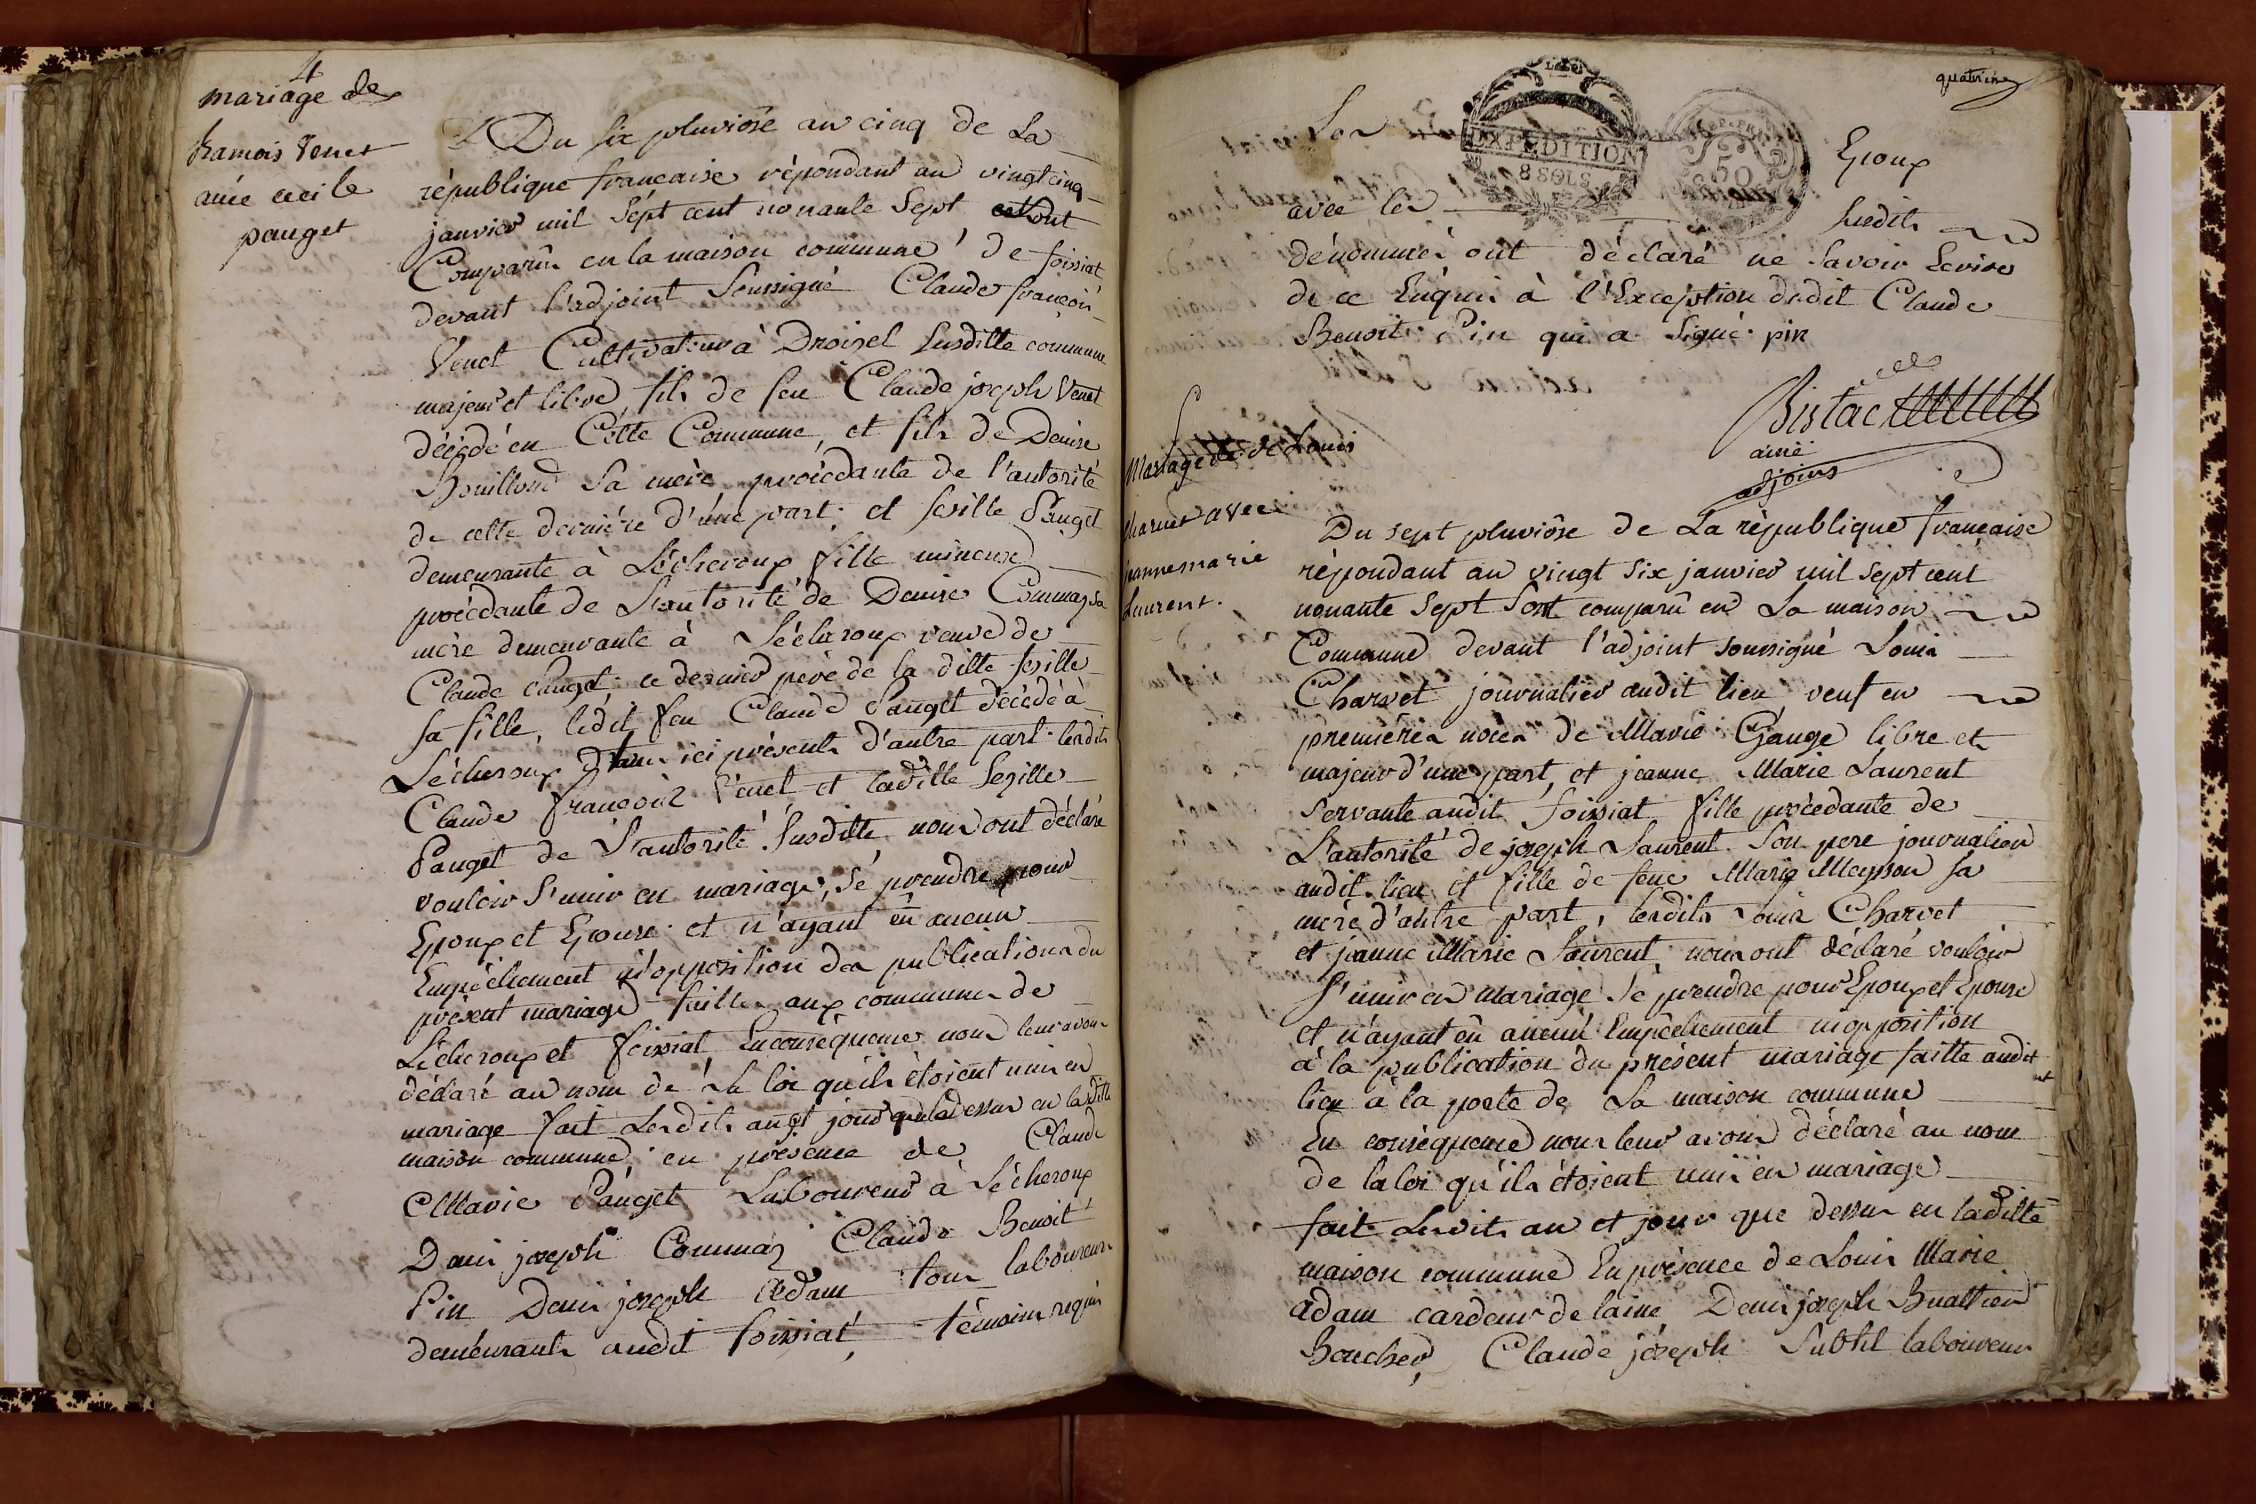 4
mariage de
francois Venet
avec cecile
pauget
Du six pluviôse an cinq de La
république francaise répondant au vingt cinq
janvier mil sépt cent nonante sept ont
Comparûs en la maison commune de foissiat
devant l'adjoint Soussigné Claude françois
Venet Cultivateur à Droisel susditte commune
majeur et libre, fils de feu Claude joseph Venet
décédé en Cette Commune, et fils de Denise
Bouilloud sa mère procédante de l'autorité
de cette dernière d'une part. et sesille Pauget
demeurante à Lécheroux fille mineure
procédante de L'autorité de Denise Commaz sa
mère demeurante à Lécheroux veuve de
Claude Pauget. ce dernier père de la ditte sesille
sa fille, ledit feu Claude Pauget décédé à
Lécheroux ici présents d'autre part. lesdits
Claude françois Venet et laditte Sesille
Pauget de L'autorité susditte nous ont déclaré
vouloir s'unir en mariage, sé prendre pour
Epoux et Epouse. et n'ayant eû aucun
Empêchement n'opposition des publications du
présent mariage faittes aux communes de
Lécheroux et foissiat Enconséquence nous leur avons
déclaré au nom de La loi qu'ils étoient unis en
mariage fait Lesdits an et jour que dessus en laditte
maison commune, en présence de Claude
Marie Pauget Laboureur à Lécheroux
Denis joseph Commaz Claude Benoit
Pin Denis joseph Adam tous laboureurs
demeurants audit foissiat, témoins requis
quatrieme
EXPEDITION
8 SOLS
50
Les Epoux
avec les susdits
dénommés ont déclaré ne savoir Ecrire
de ce Enquis à l'Exception dudit Claude
Benoit Pin qui a signé. pin
Bistac
ainé
adjoint
Mariage de Louis
charvet avec
jeanne marie
Laurent.
Du sept pluviôse de La république francaise
répondant au vingt six janvier mil sept cent
nonante sept sont comparû en La maison
Commune devant l'adjoint soussigné Louis
Charvet journalier audit lieu veuf en
premières noces de Marie Gauge libre et
majeur d'une part, et jeanne Marie Laurent
servante audit foissiat fille procédante de
L'autorité de joseph Laurent son pere journalier
audit lieu et fille de feue Marie Meysson sa
mère d'autre part, lesdits Louis Charvet
et jeanne Marie Laurent nous ont déclaré vouloir
s'unir en mariage se prendre pour Epoux et Epouse
et n'ayant eû aucun Empêchement ni opposition
à la publication du présent mariage faitte audit
lieu à la porte de La maison commune
En conséquence nous leur avons déclaré au nom
de la loi qu'ils étoient unis en mariage
fait Lesdits an et jour que dessus en laditte
maison commune En présence de Louis Marie
adam cardeur de laine, Denis joseph Buathier
Boucher, Claude joseph Subtil laboureur